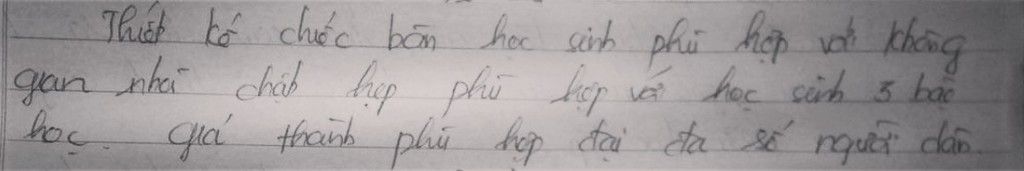 Thiết kế chiếc bàn học sinh phù hợp với không
gian nhà chật hẹp phù hợp với học sinh 3 bậc
học. giá thành phù hợp đại đa số người dân.